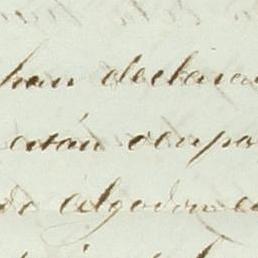 han declara
están ocupa
de algodon e